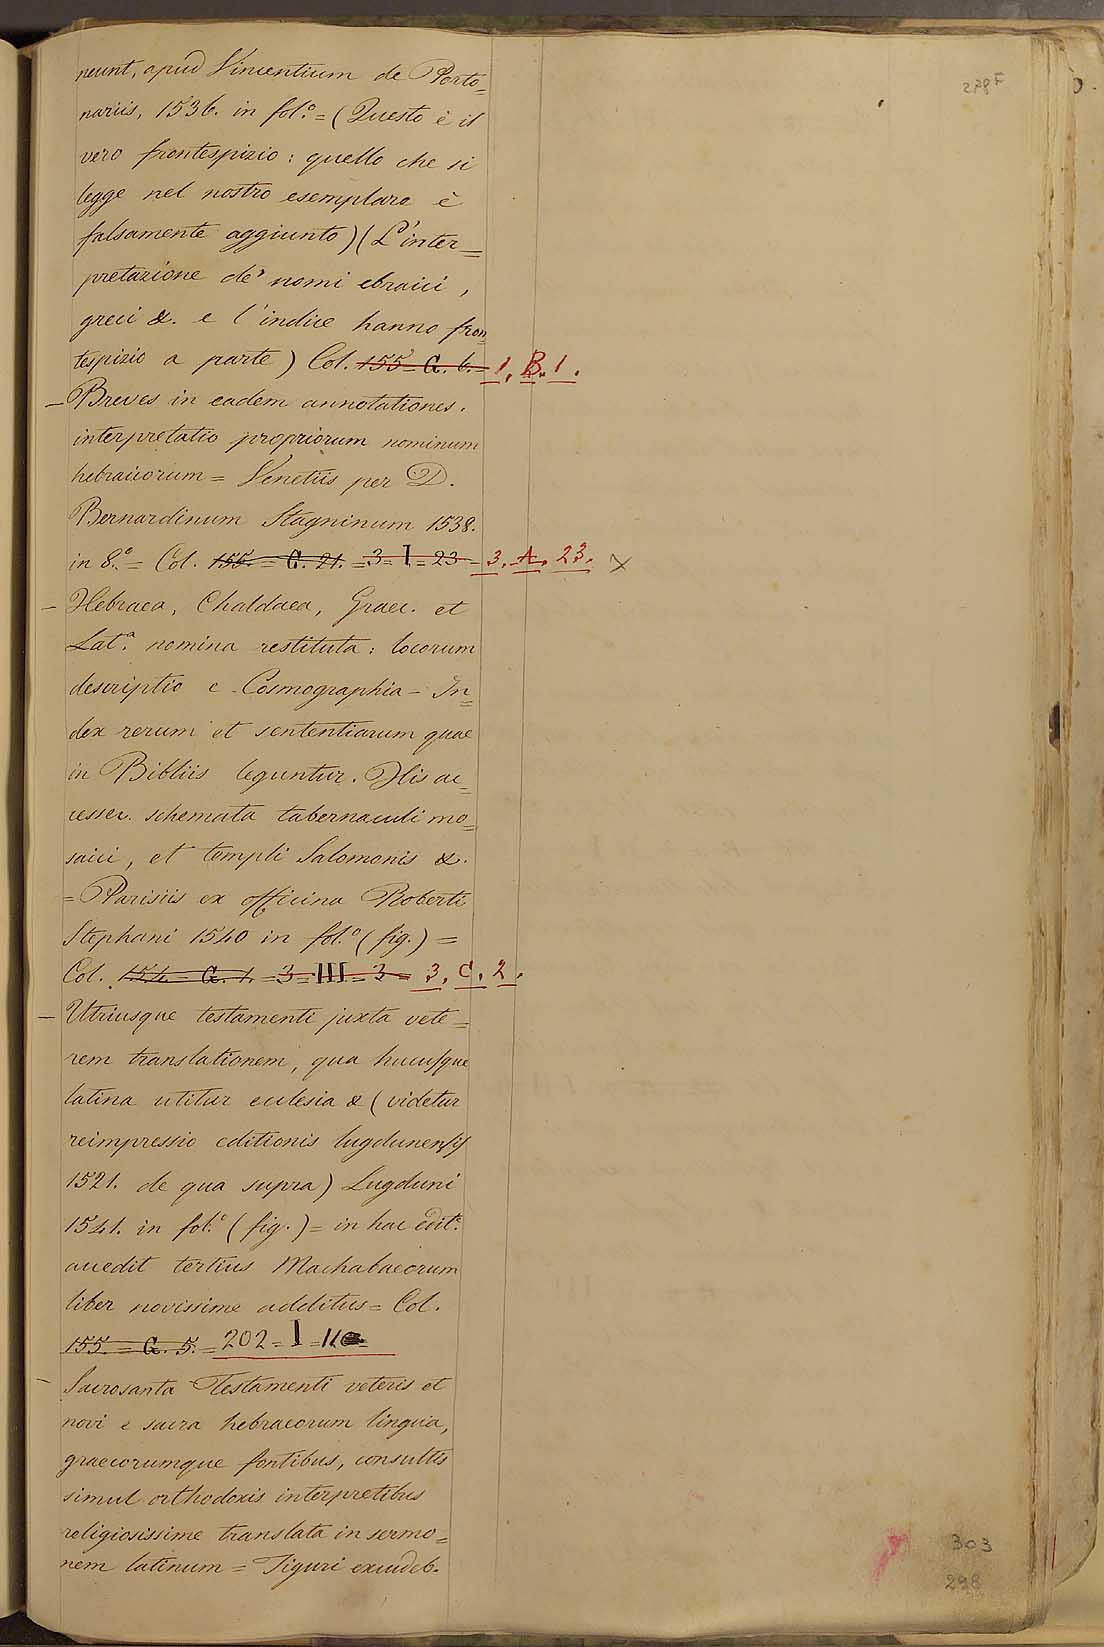 neunt, apud Vincentium de Porto=
nariis, 1536. in fol.° = (Questo è il
vero frontespizio: quello che si
legge nel nostro esemplare è
falsamente aggiunto) (L'inter=
pretazione de' nomi ebraici,
greci &. e l'indice hanno fron=
tespizio a parte) Col. 155 = G. 6. = 1. B. 1.
— Breves in eadem annotationes.
interpretatio propriorum nominum
hebraicorum = Venetiis per D.
Bernardinum Stagninum 1538.
in 8.° = Col. 155. = G. 21. = 3 = I = 23 = 3. A. 23. X
— Hebraea, Chaldaea, Graec. et
Lat.ª nomina restituta: locorum
descriptio e Cosmographia – In=
dex rerum et sententiarum quae
in Bibliis leguntur. His ac=
cesser. schemata tabernaculi mo=
saici, et templi Salomonis &.
= Parisiis ex officina Roberti
Stephani 1540 in fol.° (fig.) =
Col. 154 = G. 1. = 3 = III = 3 = 3. C. 2.
— Utriusque testamenti juxta vete=
rem translationem, qua hucusque
latina utitur eclesia & (videtur
reimpressio editionis lugdunensis
1521. de qua supra) Lugduni
1541. in fol.° (fig.) = in hac edit.e
accedit tertius Machabaeorum
liber novissime additus = Col.
155. = G. 5. = 202 = I = 11
— Sacrosanta Testamenti veteris et
novi e sacra hebraeorum lingua,
graecorumque fontibus, consultis
simul orthodoxis interpretibus
religiosissime translata in sermo=
nem latinum = Tiguri excudeb.
279F
303
298